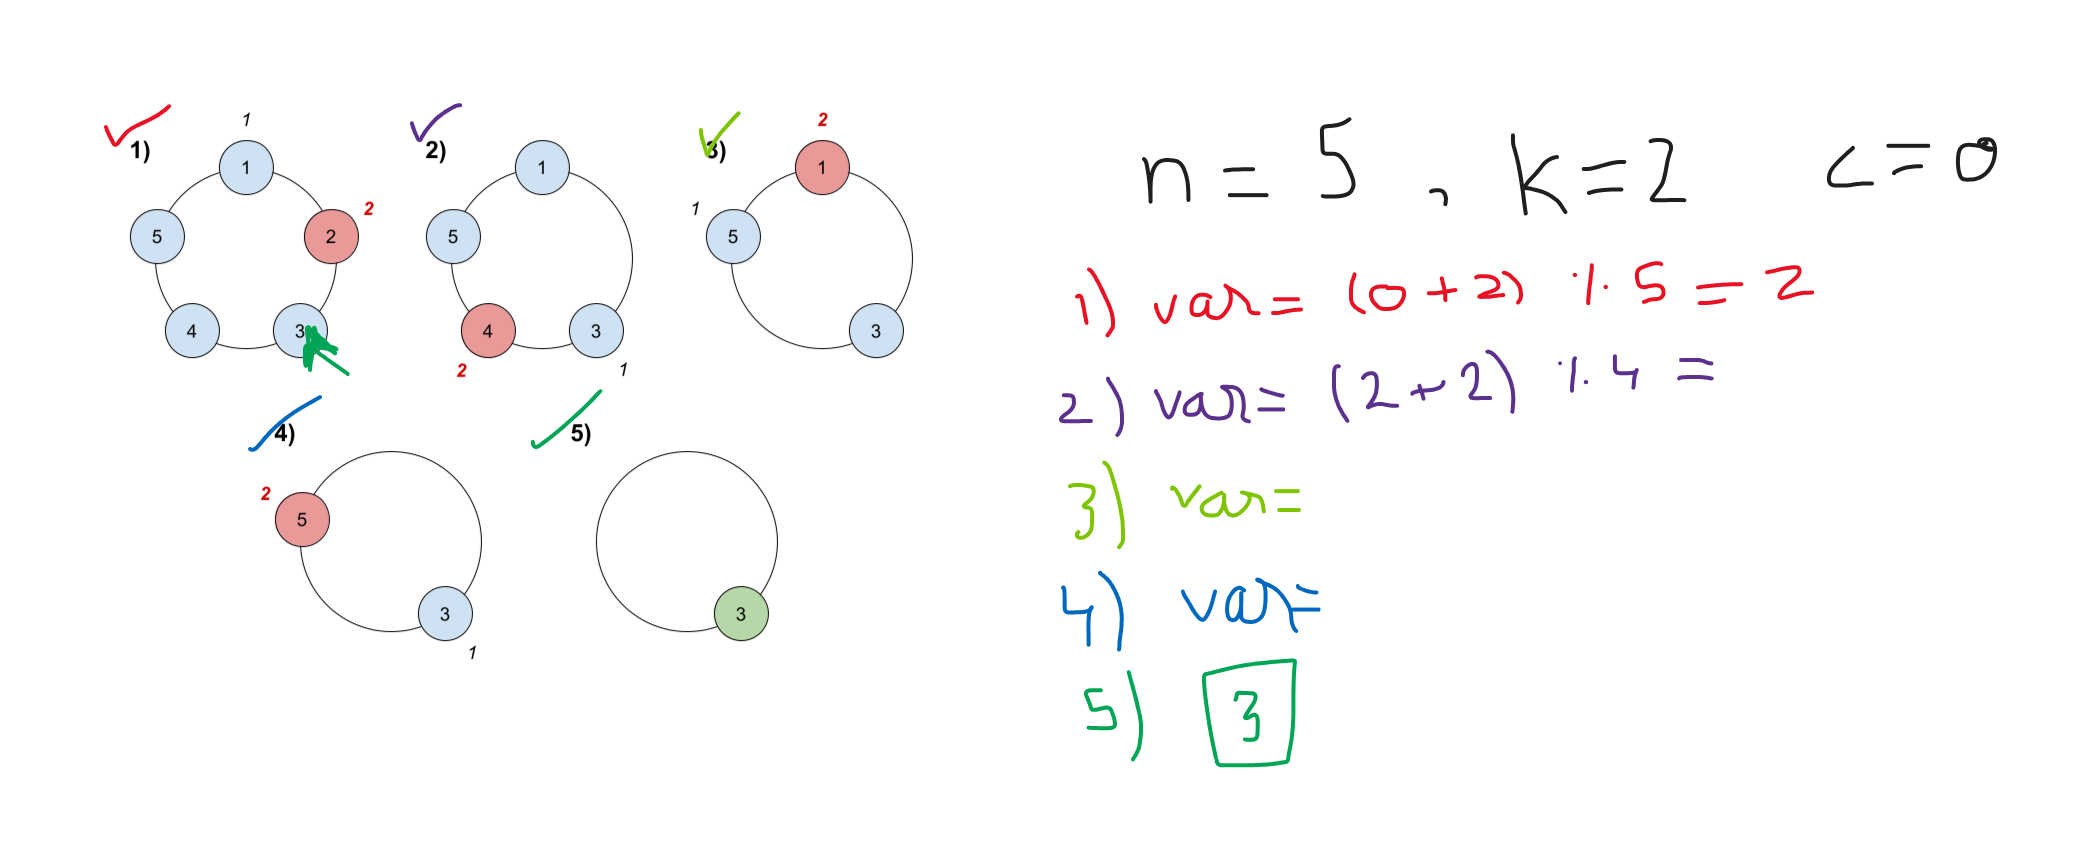 1)
1
1
2
2
3
4
5
2)
1
5
4
2
3
1
3)
2
1
1
5
3
4)
2
5
3
1
5)
3
n = 5 , k = 2 c = 0
1) var = (0 + 2) % 5 = 2
2) var = (2 + 2) % 4 =
3) var =
4) var =
5) 3